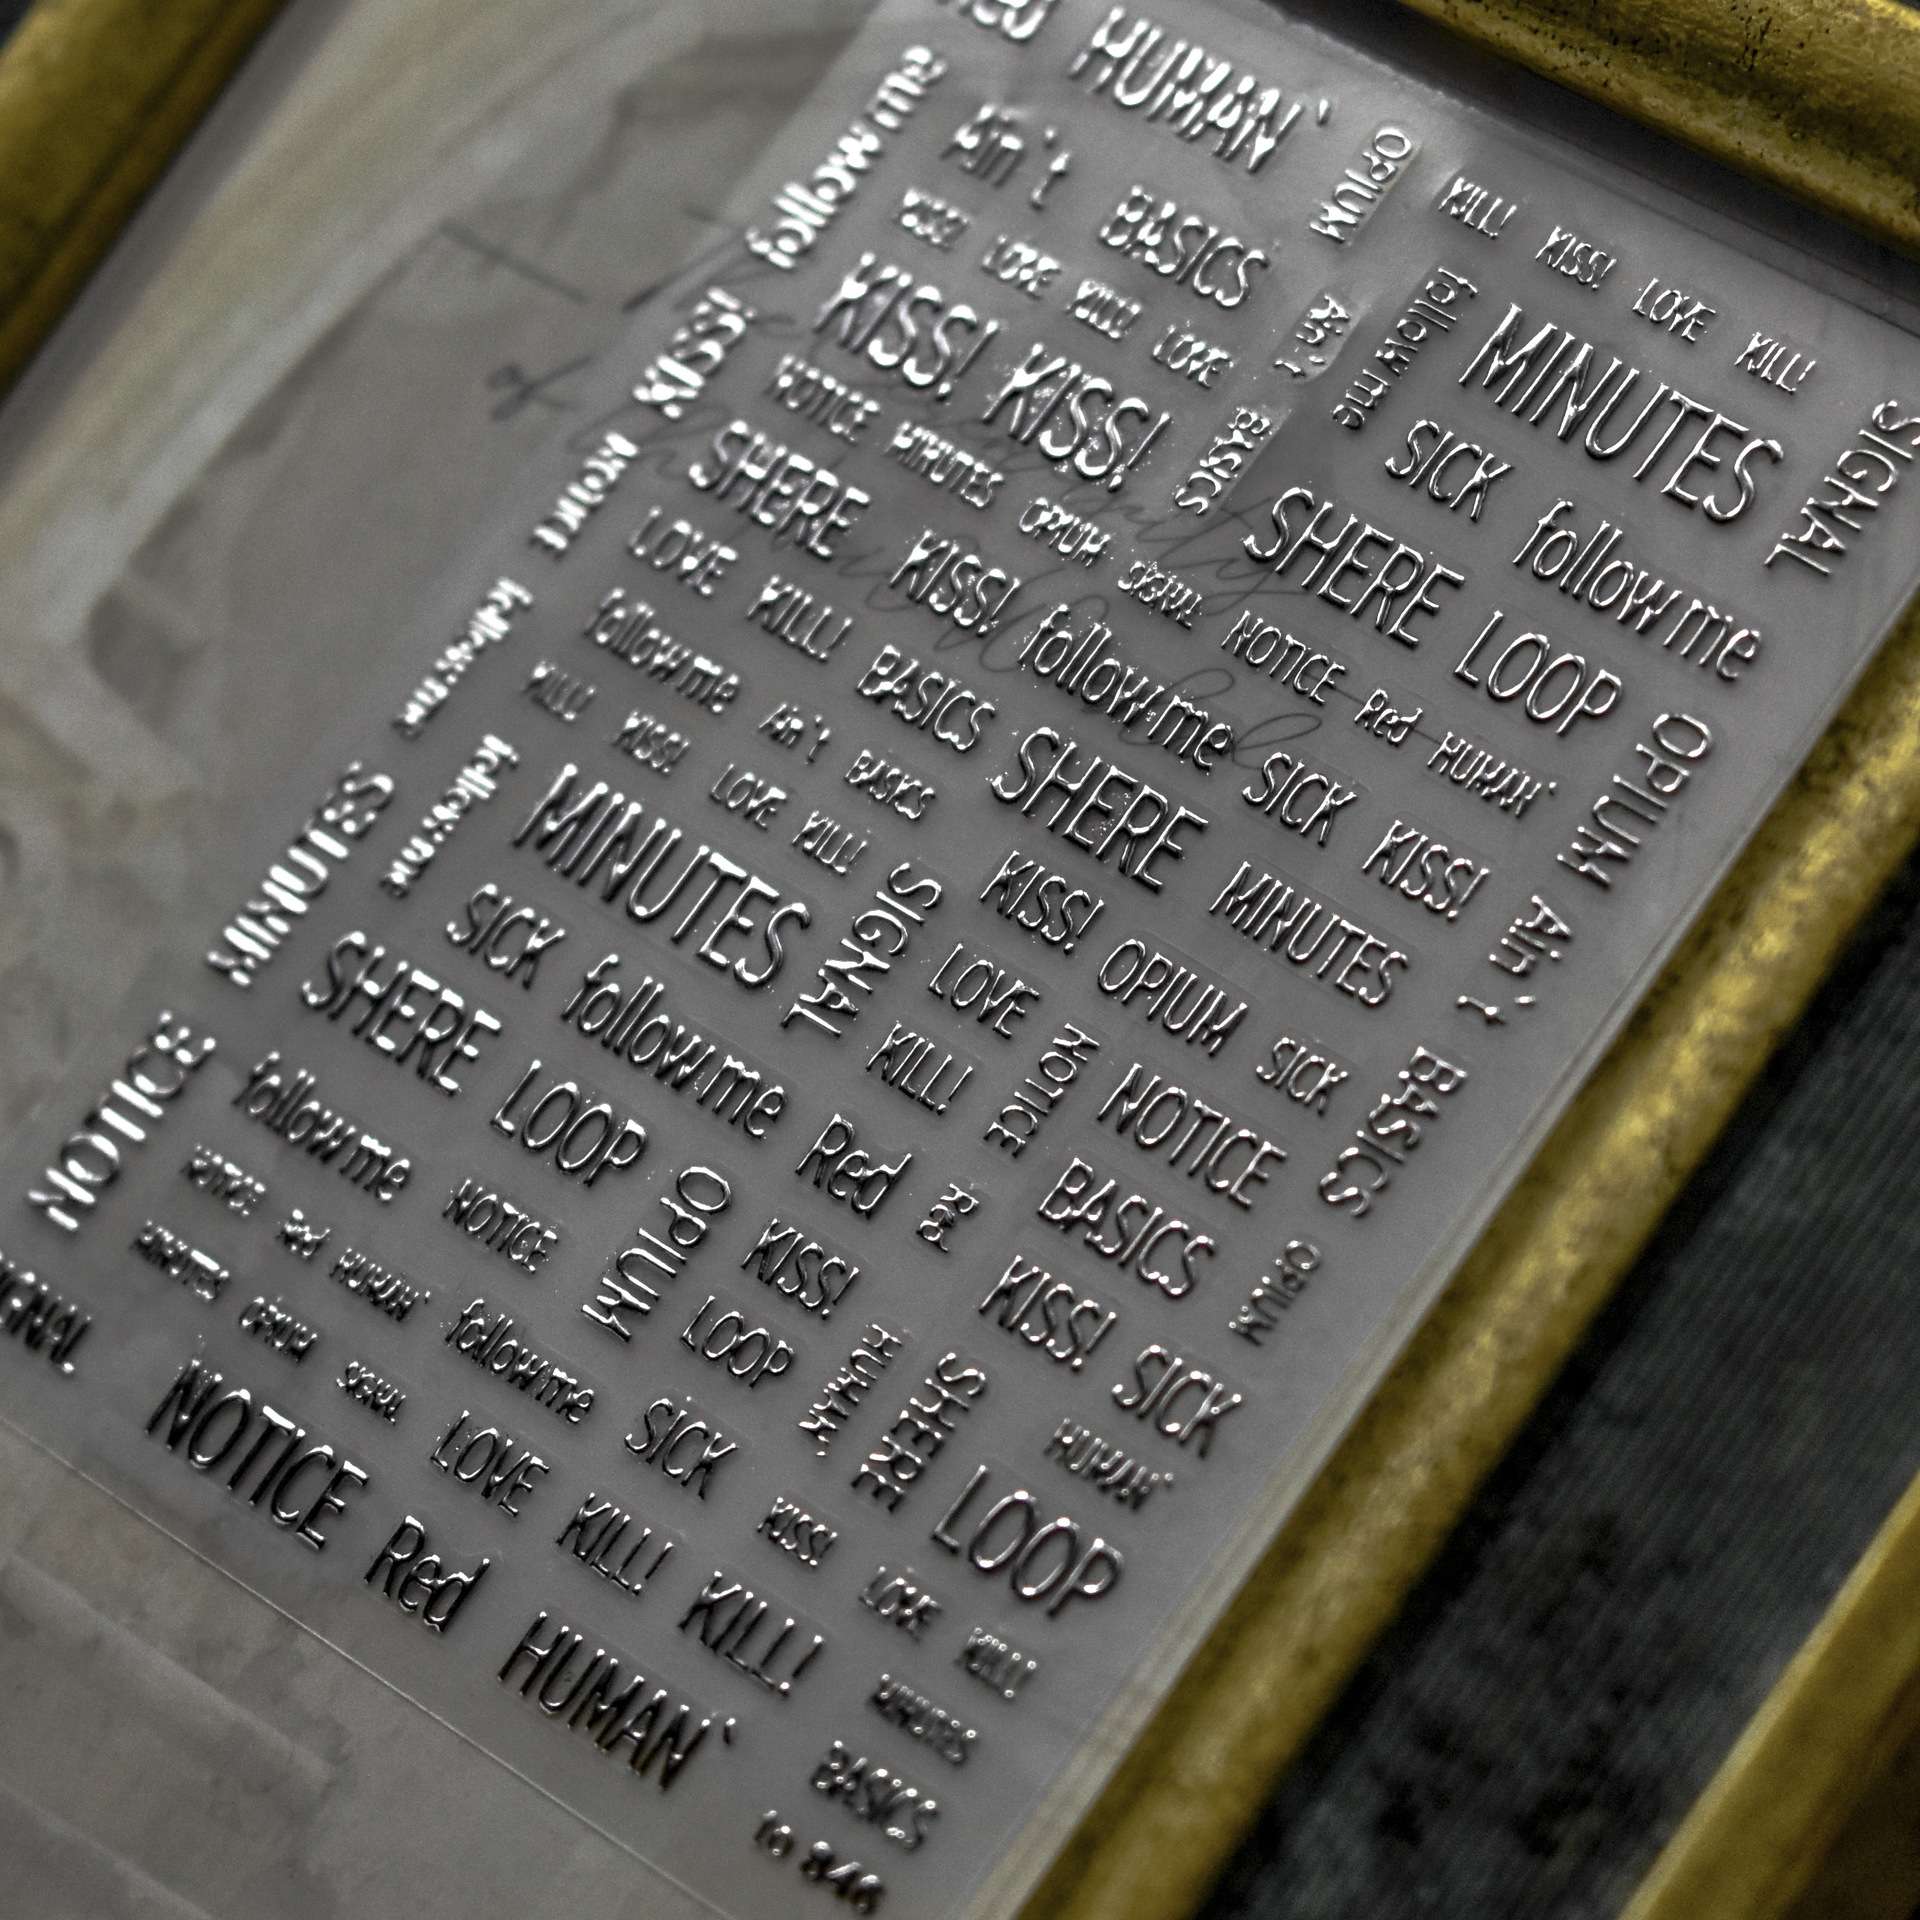 HUMAN`
follow me
Ain`t BASICS
OPIUM
KISS! LOVE KILL! LOVE
Ain`t
BASICS
KISS! KISS!
KISS!
NOTICE MINUTES OPIUM SIGNAL NOTICE Red HUMAN`
NOTICE
SHERE KISS! follow me SICK KISS!
LOVE KILL! BASICS SHERE MINUTES
follow me Ain`t BASICS
follow me
KILL! KISS! LOVE KILL!
follow me
MINUTES
SIGNAL
SICK follow me Red
SHERE LOOP
OPIUM
MINUTES
NOTICE
KILL! KISS! LOVE KILL!
follow me
MINUTES
SIGNAL
SICK follow me
SHERE LOOP
OPIUM
Ain`t
BASICS
OPIUM
KISS! OPIUM SICK
LOVE
NOTICE
NOTICE
KILL!
BASICS
Red
KISS! SICK
follow me NOTICE
KISS!
LOOP
HUMAN`
SHERE
HUMAN`
LOOP
NOTICE Red HUMAN` follow me SICK
KISS! LOVE KILL!
MINUTES OPIUM SIGNAL LOVE KILL! KILL!
MINUTES
BASICS
NOTICE Red HUMAN`
to 846
of